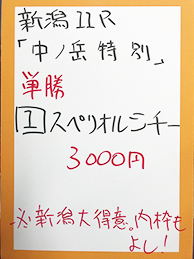 新潟11R
「中ノ岳特別」
単勝
1 スペリオルシチー
3000円
必新潟大得意。内枠も
よし!